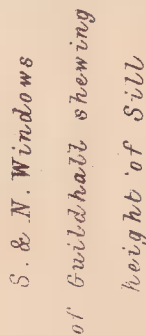 S. & N. Windows
of Guildhall shewing
height of Sill